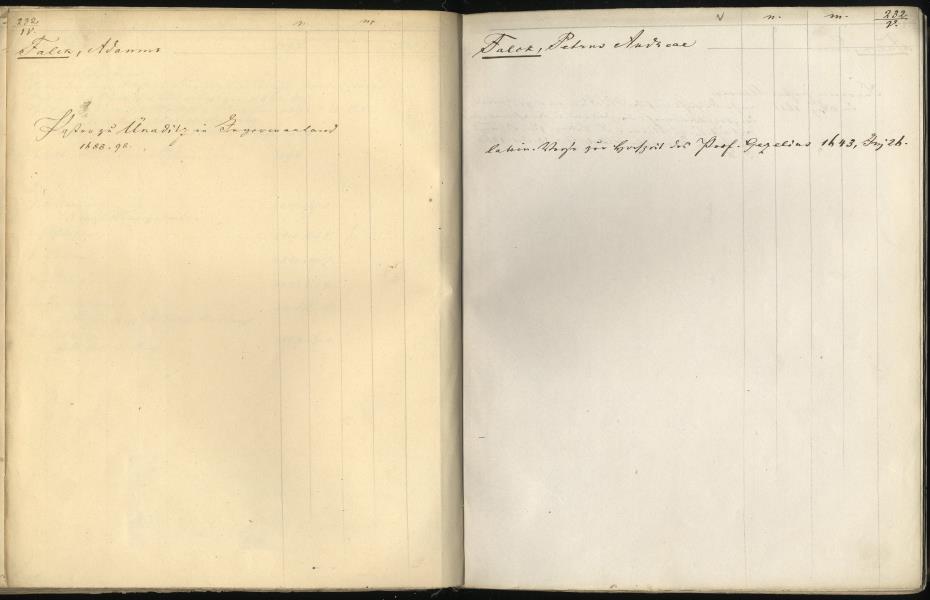 232.
IV.
n. m.
Falck, Adamus
Pastor zu in Ingermanland
1688. 90.
v n. m. 232.
V.
Falck, Petrus Andreae
latein. Verse zur Hochzeit des Prof. Gezelius 1643,